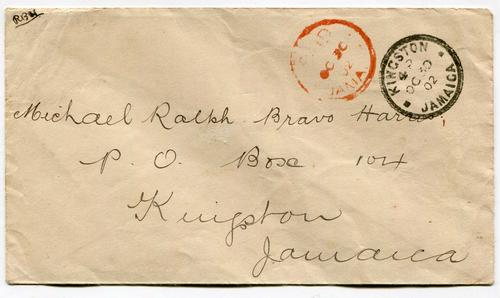 RBH
PAID
OC 30
02
JAMAICA
KINGSTON
OC 30
02
JAMAICA
Michael Ralph Bravo Harris,
P. O. Box 104
Kingston
Jamaica